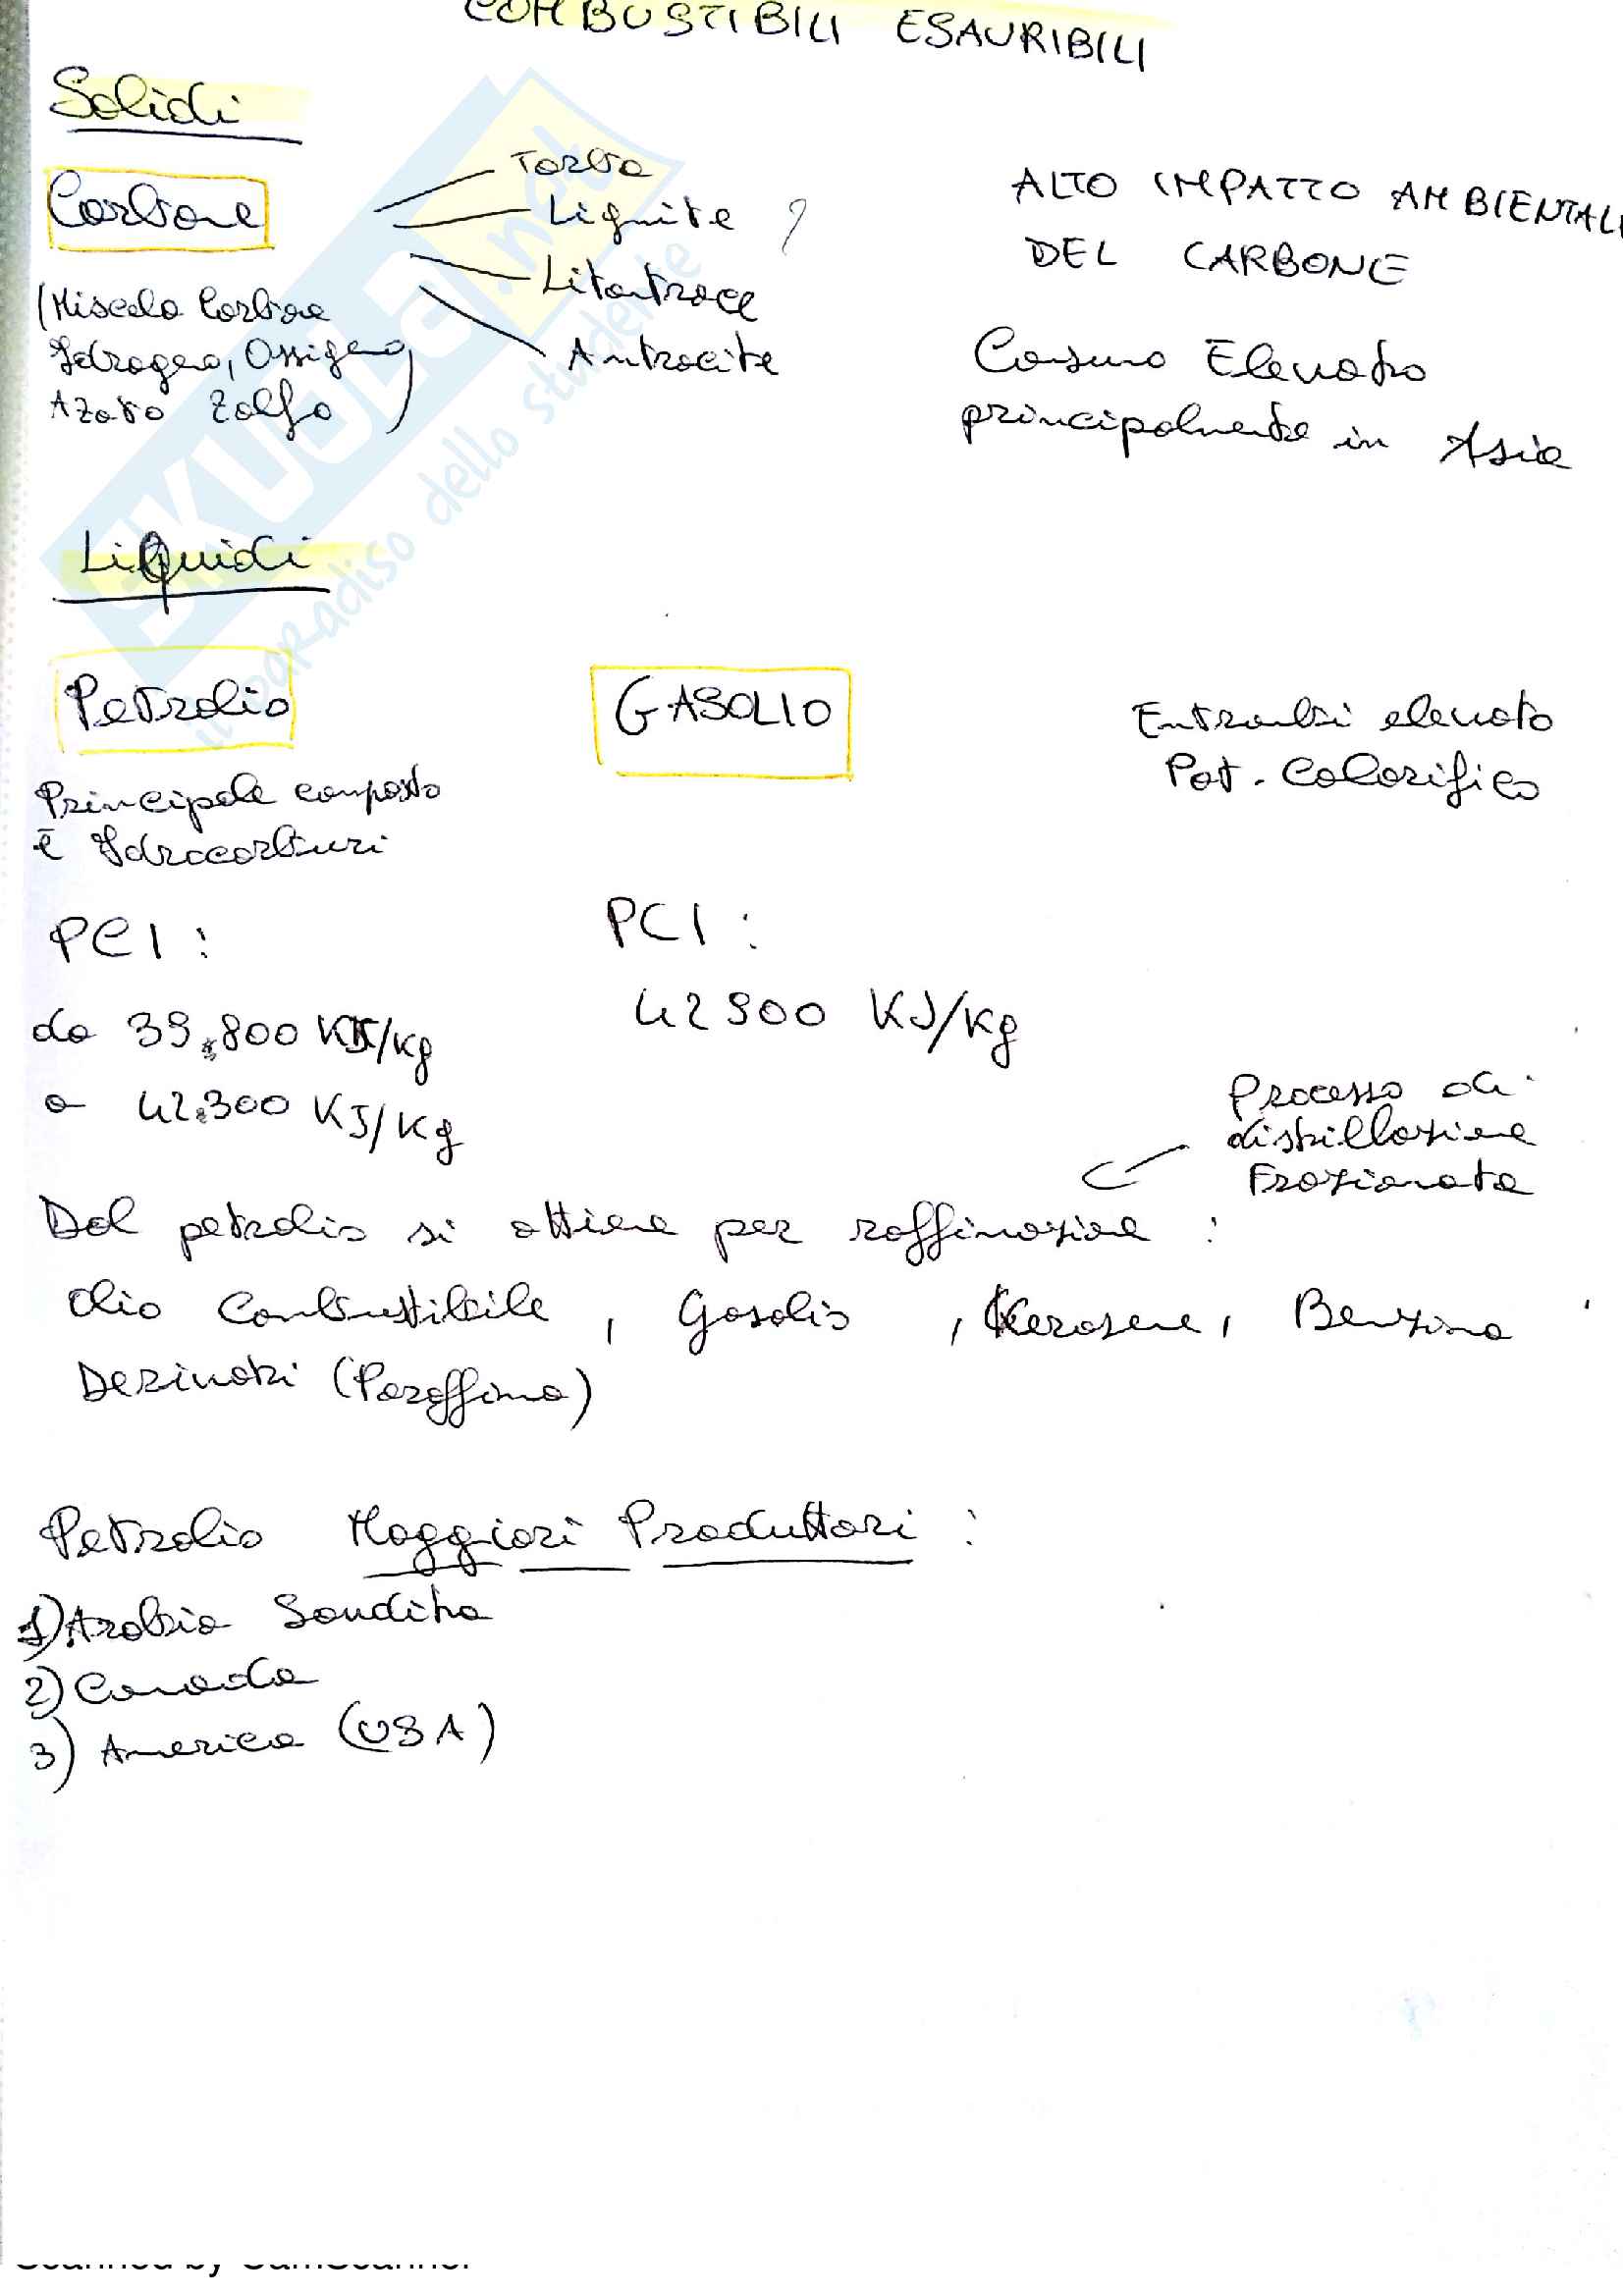 COMBUSTIBILI ESAURIBILI
Solidi
Carbone
Torba
Lignite ?
Litantrace
Antracite
(Miscela Carbone
Idrogeno, Ossigeno,
Azoto Zolfo)
ALTO IMPATTO AMBIENTALE
DEL CARBONE
Consumo Elevato
principalmente in Asia
Liquidi
Petrolio
GASOLIO
Entrambi elevato
Pot. Calorifico
Principale composto
è Idrocarburi
PCI :
da 39.800 KJ/kg
a 42.300 KJ/kg
PCI :
42900 KJ/kg
Processo di
distillazione
Frazionata
Dal petrolio si ottiene per raffinazione :
Olio Combustibile , Gasolio , Kerosene, Benzina
Derivati (Paraffina)
Petrolio Maggiori Produttori :
1) Arabia Saudita
2) Canada
3) America (USA)
SKUOLA.net
il paradiso dello studente
Scanned by CamScanner